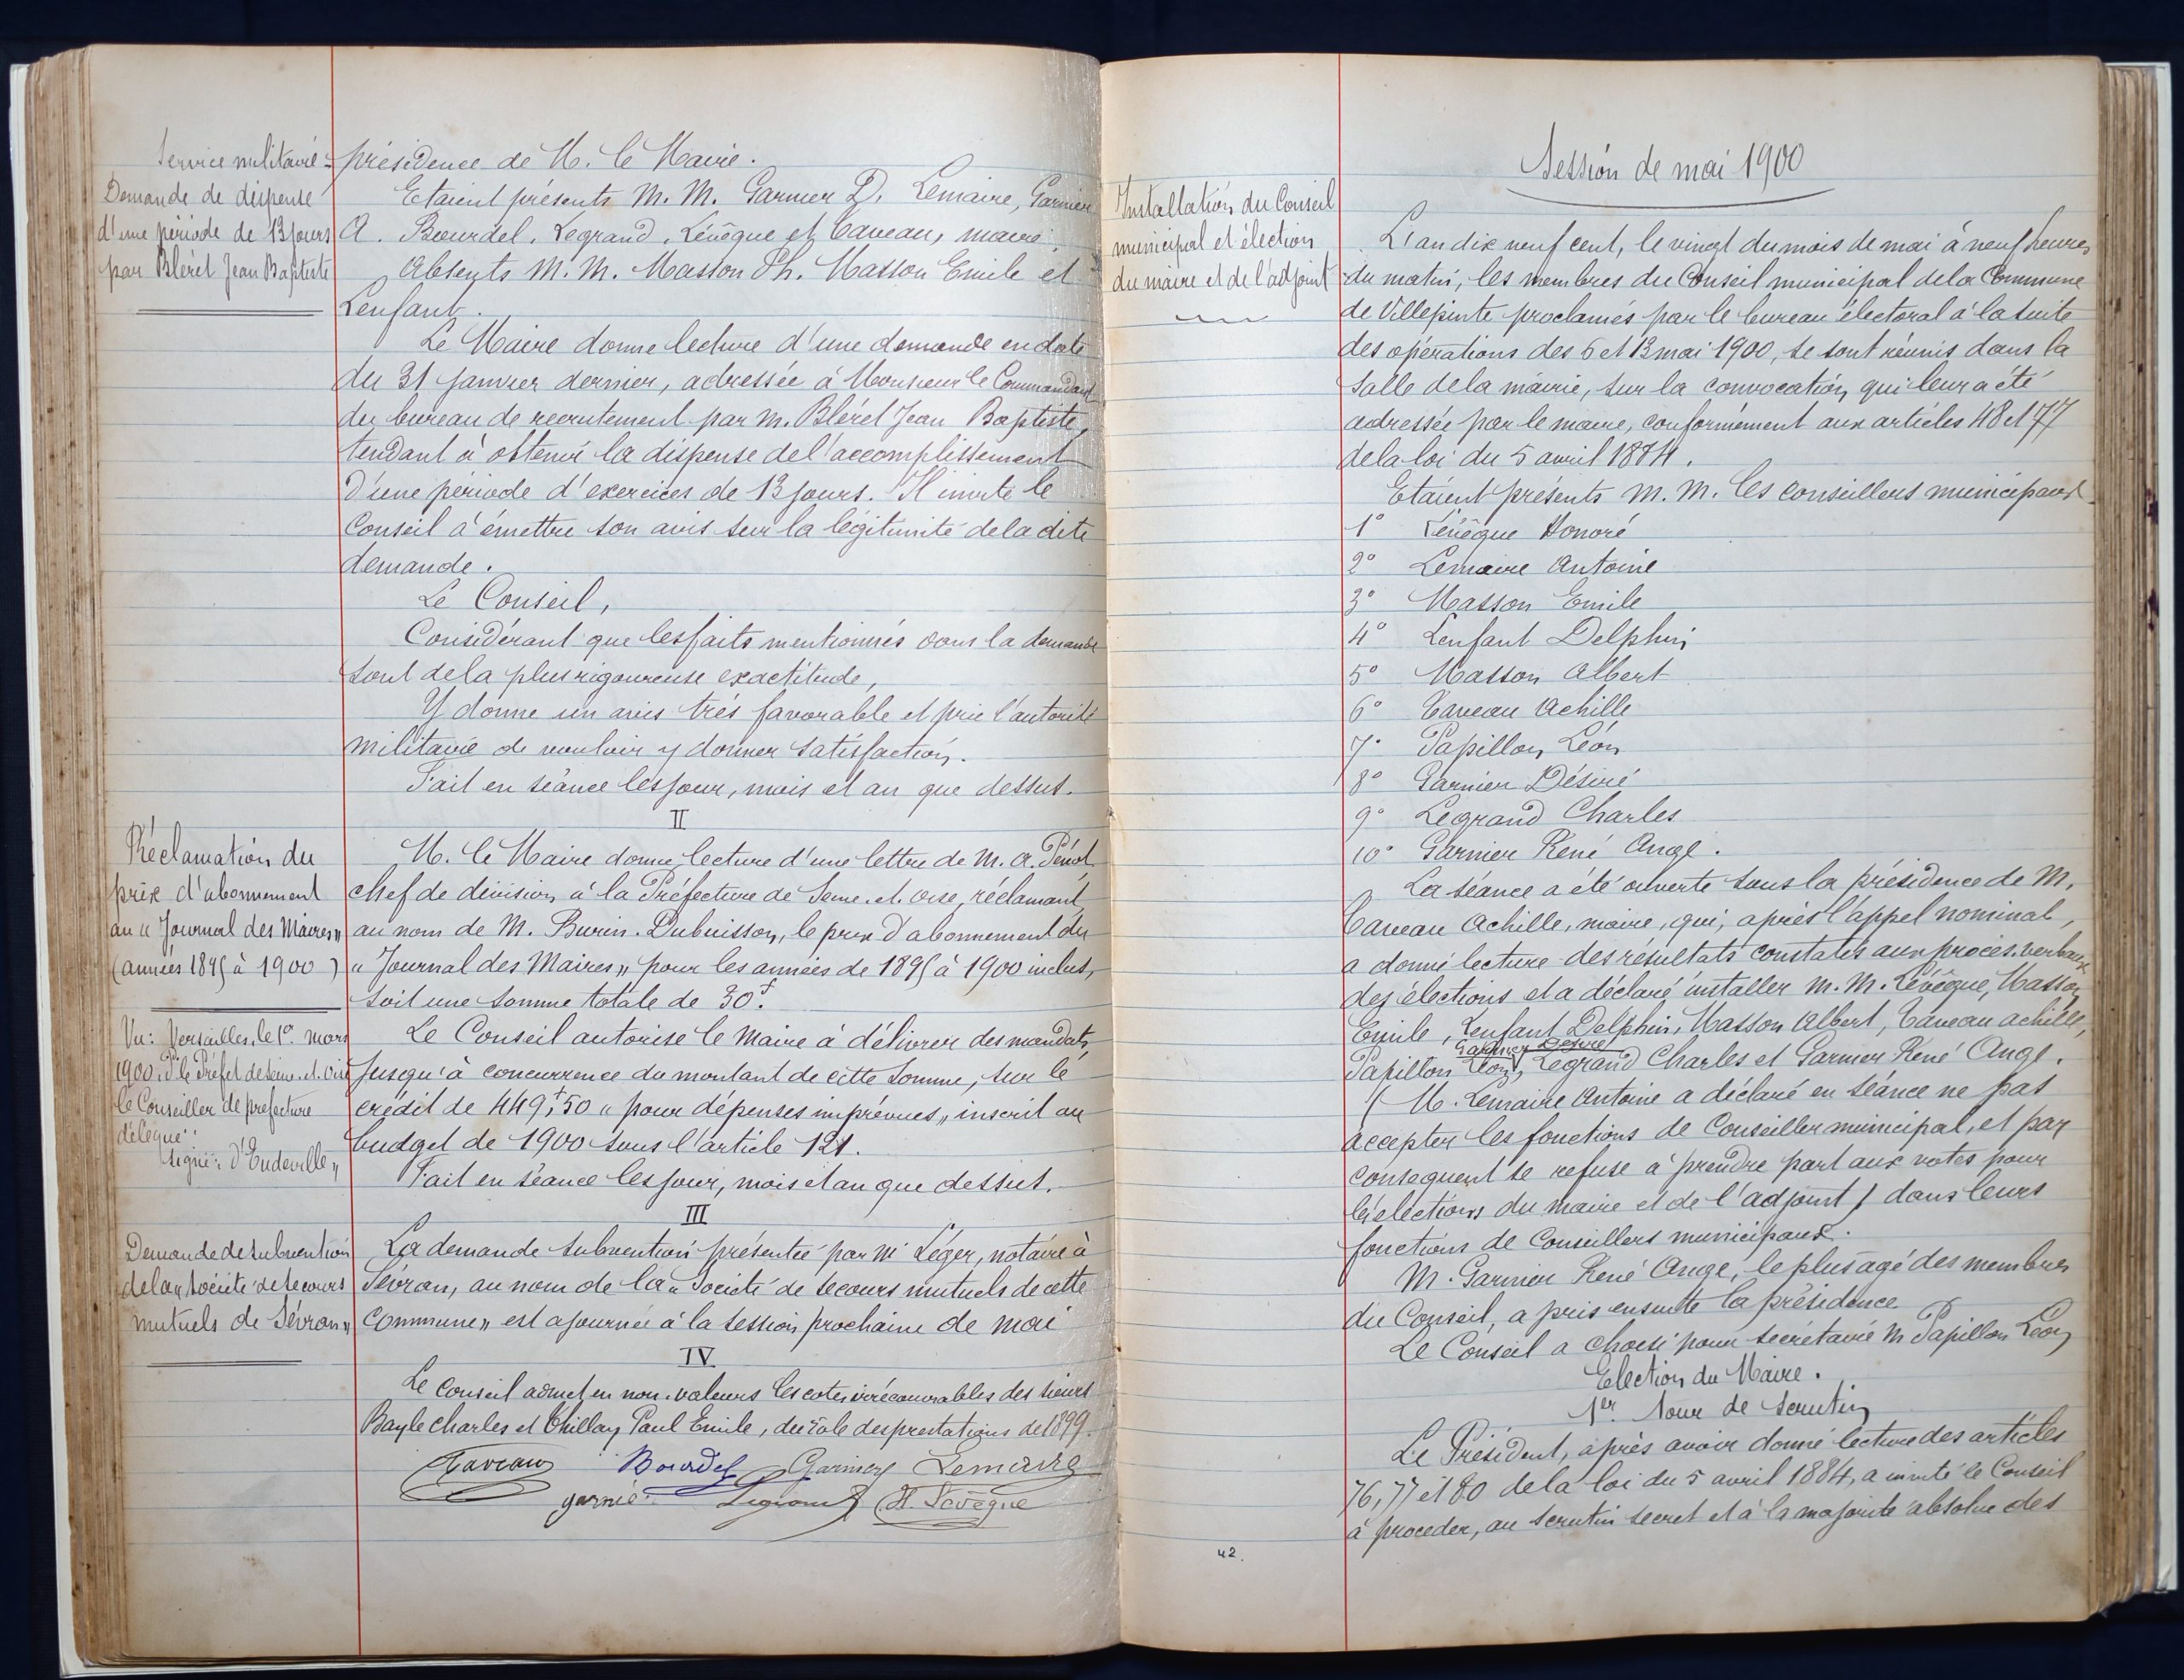 Service militaire -
Demande de dispense
d'une période de 13 jours
par Bléret Jean Baptiste
présidence de M. le Maire.
Etaient présents M. M. Garnier D. Lemaire, Garnier
A. Bourdel. Legrand. Lévêque et Taveau, maire.
Absents M. M. Masson Ph. Masson Emile et
Lenfant.
Le Maire donne lecture d'une demande en date
du 31 janvier dernier, adressée à Monsieur le Commandant
du bureau de recrutement par M. Bléret Jean Baptiste,
tendant à obtenir la dispense de l'accomplissement
d'une période d'exercices de 13 jours. Il invite le
Conseil à émettre son avis sur la légitimité de la dite
demande.
Le Conseil,
Considérant que les faits mentionnés dans la demande
sont de la plus rigoureuse exactitude,
Y donne un avis très favorable et prie l'autorité
militaire de vouloir y donner satisfaction.
Fait en séance les jour, mois et an que dessus.
II
Réclamation du
prix d'abonnement
au « Journal des Maires »
(années 1895 à 1900)
M. le Maire donne lecture d'une lettre de M. A. Pénot
chef de division à la Préfecture de Seine-et-Oise, réclamant,
au nom de M. Burin-Dubuisson, le prix d'abonnement du
« Journal des Maires » pour les années de 1895 à 1900 inclus,
soit une somme totale de 30f.
Vu: Versailles, le 1er mars
1900. Pr le Préfet de Seine-et-Oise
le Conseiller de préfecture
délégué:
Signé: d'Endeville »
Le Conseil autorise le Maire à délivrer des mandats,
jusqu'à concurrence du montant de cette somme, sur le
crédit de 449f,50 « pour dépenses imprévues » inscrit au
budget de 1900 sous l'article 121.
Fait en séance les jour, mois et an que dessus.
III
Demande de subvention
de la « Société de secours
mutuels de Sévran »
La demande subvention présentée par Me Léger, notaire à
Sévran, au nom de la « Société de secours mutuels de cette
Commune » est ajournée à la session prochaine de mai
IV
Le Conseil admet en non-valeurs les cotes irrécouvrables des sieurs
Bayle Charles et Thillay Paul Emile, du rôle des prestations de 1899.
Taveau Bourdel Garnier Lemaire
garnier Legrand H. Levêque
Session de mai 1900
Installation du Conseil
municipal et élection
du maire et de l'adjoint
L'an dix neuf cent, le vingt du mois de mai à neuf heures
du matin, les membres du Conseil municipal de la Commune
de Villepinte proclamés par le bureau électoral à la suite
des opérations des 6 et 13 mai 1900, se sont réunis dans la
salle de la mairie, sur la convocation qui leur a été
adressée par le maire, conformément aux articles 48 et 77
de la loi du 5 avril 1884.
Etaient présents M. M. les conseillers municipaux
1° Lévêque Honoré
2° Lemaire Antoine
3° Masson Emile
4° Lenfant Delphin
5° Masson Albert
6° Taveau Achille
7° Papillon Léon
8° Garnier Désiré
9° Legrand Charles
10° Garnier René Ange.
La séance a été ouverte sous la présidence de M.
Taveau Achille, maire, qui, après l'appel nominal,
a donné lecture des résultats constatés aux procès-verbaux
des élections et a déclaré installer M. M. Lévêque, Masson
Emile, Lenfant Delphin, Masson Albert, Taveau Achille,
Garnier Désiré
Papillon Léon, Legrand Charles et Garnier René Ange.
(M. Lemaire Antoine a déclaré en séance ne pas
accepter les fonctions de Conseiller municipal, et par
conséquent se refuse à prendre part aux votes pour
les élections du maire et de l'adjoint) dans leurs
fonctions de Conseillers municipaux.
M. Garnier René Ange, le plus agé des membres
du Conseil, a pris ensuite la présidence
Le Conseil a choisi pour secrétaire M. Papillon Léon
Election du Maire.
1er Tour de scrutin
Le Président, après avoir donné lecture des articles
76, 77 et 80 de la loi du 5 avril 1884, a invité le Conseil
à procéder, au scrutin secret et à la majorité absolue des
42.